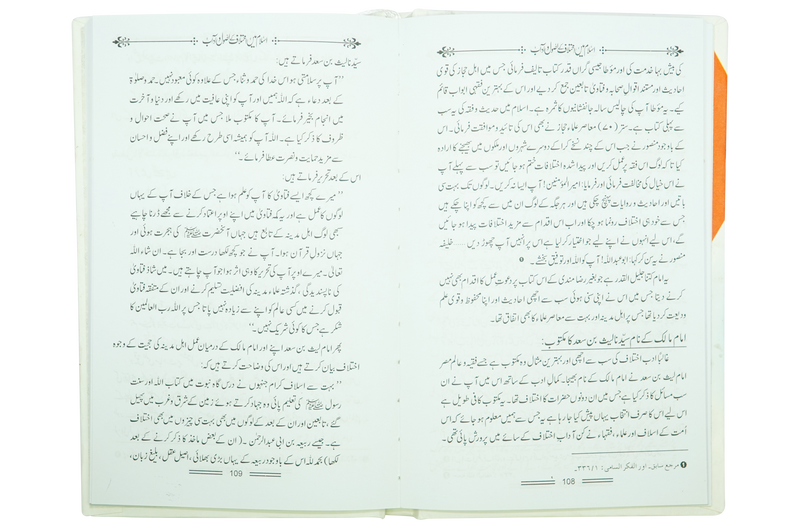 اسلام میں اختلاف کے اصول و آداب
کی بیش بہا خدمت کی اور مؤطا جیسی گراں قدر کتاب تالیف فرمائی جس میں اہل حجاز کی قوی
احادیث اور مستند اقوال صحابہ و فتاویٰ تابعین جمع کر دیے اور اس کے بہترین فقہی ابواب قائم
کیے۔ یہ مؤطا آپ کی چالیس سالہ جانفشانیوں کا ثمرہ ہے۔ اسلام میں حدیث و فقہ کی یہ سب
سے پہلی کتاب ہے۔ ستر (۷۰) معاصر علماء حجاز نے بھی اس کی تائید و موافقت فرمائی۔ اس
کے باوجود منصور نے جب اس کے چند نسخے کرا کے دوسرے شہروں اور ملکوں میں بھیجنے کا ارادہ
کیا تا کہ لوگ اس فقہ پر عمل کریں اور پیدا شدہ اختلافات ختم ہو جائیں تو سب سے پہلے آپ
نے اس خیال کی مخالفت فرمائی اور فرمایا: امیر المؤمنین! آپ ایسا نہ کریں۔ لوگوں تک بہت سی
باتیں اور احادیث و روایات پہنچ چکی ہیں اور ہر جگہ کے لوگ ان میں سے کچھ کو اپنا چکے ہیں
جس سے خود ہی اختلاف رونما ہو چکا اور اب اس اقدام سے مزید اختلافات پیدا ہو جائیں
گے، اس لیے انہوں نے اپنے لیے جو اختیار کر لیا ہے اس پر انہیں آپ چھوڑ دیں ...... خلیفہ
منصور نے یہ سن کر کہا: ابو عبداللہ! آپ کو اللہ اور توفیق بخشے۔ ❶
یہ امام کتنا جلیل القدر ہے جو بغیر رضا مندی کے اس کتاب پر دعوتِ عمل کا اقدام بھی نہیں
کرنے دیتا جس میں اس نے اپنی سنی ہوئی سب سے اچھی احادیث اور اپنا محفوظ و قوی علم
ودیعت کر دیا تھا جس پر اہل مدینہ اور بہت سے معاصر علماء کا بھی اتفاق تھا۔
امام مالک کے نام سیّدنا لیث بن سعد کا مکتوب:
غالباً ادب اختلاف کی سب سے اچھی اور بہترین مثال وہ مکتوب ہے جسے فقیہ و عالم مصر
امام لیث بن سعد نے امام مالک کے نام بھیجا۔ کمال ادب کے ساتھ اس میں آپ نے ان
سب مسائل کا ذکر کیا ہے جس میں ان دونوں حضرات کا اختلاف تھا۔ یہ مکتوب کافی طویل ہے
اس لیے اس کا صرف انتخاب یہاں پیش کیا جا رہا ہے جس سے ہمیں معلوم ہو جائے کہ اس
اُمت کے اسلاف اور علماء و فقہاء نے کن آداب اختلاف کے سائے میں پرورش پائی تھی۔
❶ مرجع سابق۔ اور الفکر السامی: ۱/ ۳۳۶۔
108
اسلام میں اختلاف کے اصول و آداب
سیّدنا لیث بن سعد فرماتے ہیں:
’’آپ پر سلامتی ہو اس خدا کی حمد و ثناء، جس کے علاوہ کوئی معبود نہیں۔ حمد و صلوٰۃ
کے بعد دعاء ہے کہ اللہ ہمیں اور آپ کو اپنی عافیت میں رکھے اور دنیا و آخرت
میں انجام بخیر فرمائے۔ آپ کا مکتوب ملا جس میں آپ نے صحت احوال و
ظروف کا ذکر کیا ہے۔ اللہ آپ کو ہمیشہ اسی طرح رکھے اور اپنے فضل و احسان
سے مزید حمایت و نصرت عطا فرمائے۔‘‘
اس کے بعد تحریر فرماتے ہیں:
’’میرے کچھ ایسے فتاویٰ کا آپ کو علم ہوا ہے جس کے خلاف آپ کے یہاں
لوگوں کا عمل ہے اور یہ کہ فتاویٰ میں اپنے اوپر اعتماد کرنے سے مجھے ڈرنا چاہیے
سبھی لوگ اہل مدینہ کے تابع ہیں جہاں آنحضرت ﷺ کی ہجرت ہوئی اور
جہاں نزول قرآن ہوا۔ آپ نے جو کچھ لکھا درست اور بجا ہے۔ ان شاء اللہ
تعالیٰ۔ میرے اوپر آپ کی تحریر کا وہی اثر ہوا جو آپ چاہتے ہیں۔ میں شاذ فتاویٰ
کی ناپسندیدگی، گذشتہ علماء مدینہ کی افضلیت تسلیم کرنے اور ان کے متفقہ فتاویٰ
قبول کرنے میں کسی عالم کو اپنے سے زیادہ نہیں پاتا جس پر اللہ رب العالمین کا
شکر ہے جس کا کوئی شریک نہیں۔‘‘
پھر امام لیث بن سعد اپنے اور امام مالک کے درمیان عمل اہل مدینہ کی حجیت کے وجوہ
اختلاف بیان کرتے ہیں اور اس کی وضاحت کرتے ہیں کہ:
’’بہت سے اسلاف کرام جنہوں نے درس گاہ نبوت میں کتاب اللہ اور سنت
رسول ﷺ کی تعلیم پائی وہ جہاد کرتے ہوئے زمین کے شرق و غرب میں پھیل
گئے، تابعین اور ان کے بعد کے لوگوں میں بھی بہت سی چیزوں میں بھی اختلاف
ہے۔ جیسے ربیعہ بن ابی عبدالرحمٰن۔ (ان کے بعض ماخذ کا ذکر کرنے کے بعد
لکھا) بحمد للہ اس کے باوجود ربیعہ کے یہاں بڑی بھلائی، اصیل عقل، بلیغ زبان،
109